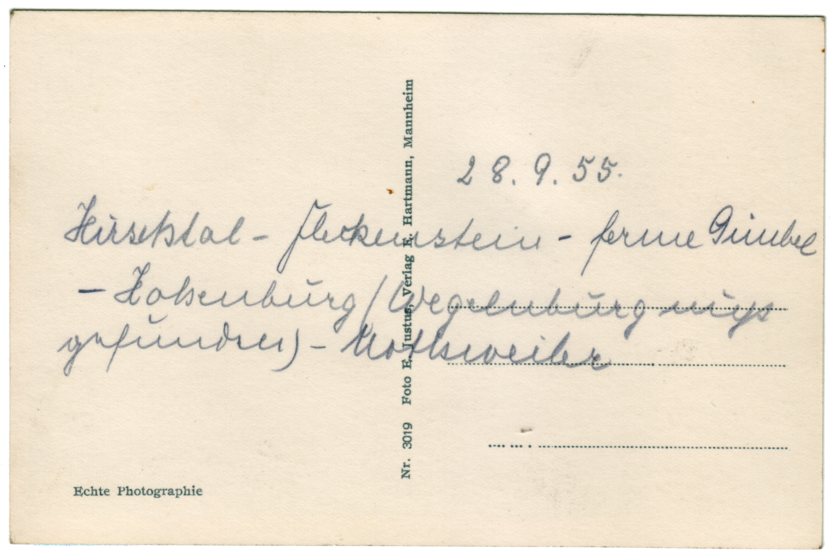 28.9.55.
Hirschtal – Fleckenstein – ferme Gimbel
– Hohenburg (Wegelnburg nicht
gefunden) – Nothweiler
Nr. 3019 Foto E. Justus, Verlag E. Hartmann, Mannheim
Echte Photographie